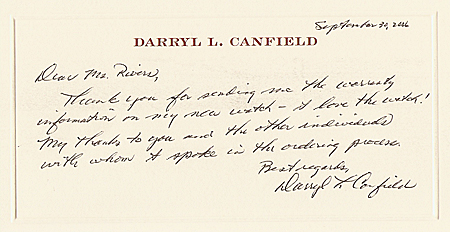 September 30, 2006
DARRYL L. CANFIELD
Dear Ms. Rivers,
Thank you for sending me the warranty
information on my new watch – I love the watch!
My thanks to you and the other individuals
with whom I spoke in the ordering process.
Best regards,
Darryl L Canfield